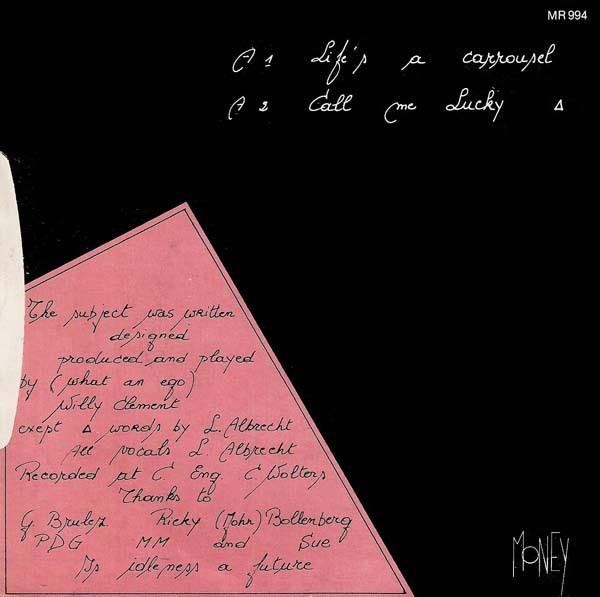 MR 994
A 1 Life's a carrousel
A 2 Call me Lucky △
The subject was written
designed
produced and played
by (what an ego)
Willy Clement
exept △ words by L. Albrecht
All vocals L. Albrecht
Recorded at C. Eng. C Wolters
Thanks to
G. Brulez Ricky (Mohr) Bollenberg
PDG MM and Sue
Is idleness a future
MONEY